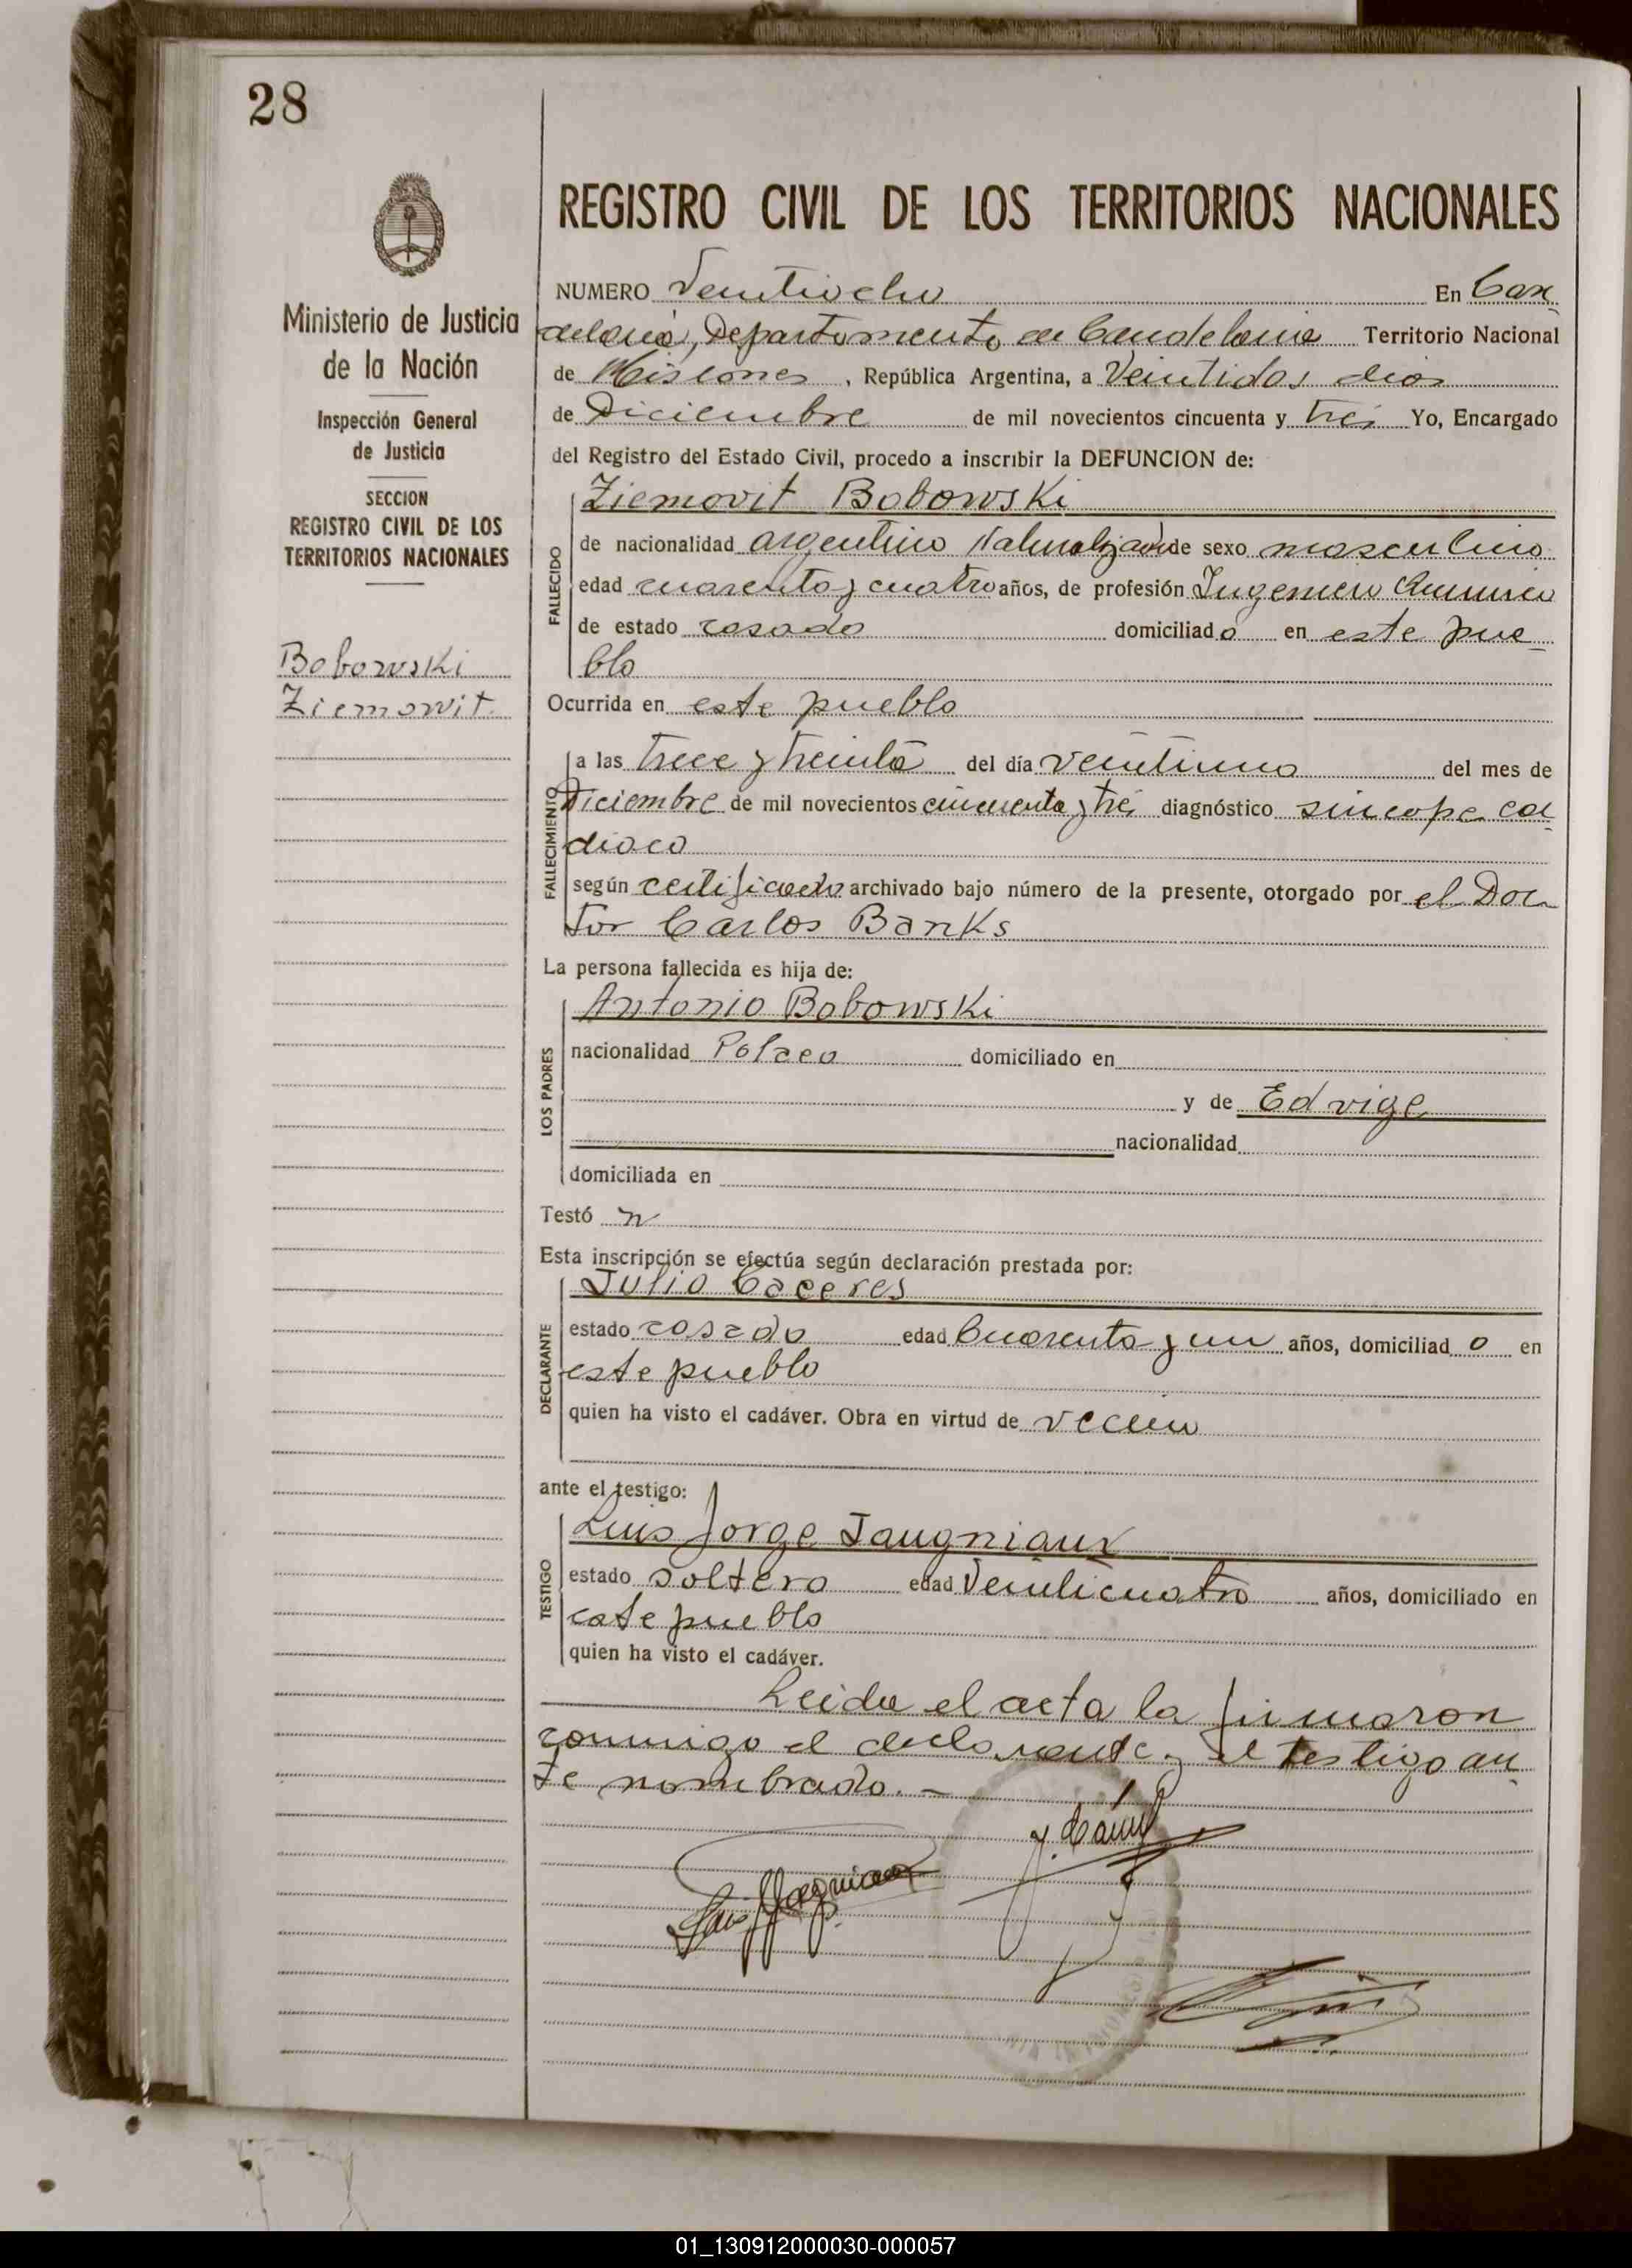 28
REGISTRO CIVIL DE LOS TERRITORIOS NACIONALES
Ministerio de Justicia
de la Nación
Inspección General
de Justicia
SECCION
REGISTRO CIVIL DE LOS
TERRITORIOS NACIONALES
Bobowski
Ziemowit
NUMERO Veintiocho En Can
delaria, Departamento de Candelaria Territorio Nacional
de Misiones, República Argentina, a Veintidos dias
de Diciembre de mil novecientos cincuenta y tres Yo, Encargado
del Registro del Estado Civil, procedo a inscribir la DEFUNCION de:
Ziemovit Bobowski
FALLECIDO
de nacionalidad argentino Naturalizado de sexo masculino
edad cuarenta y cuatro años, de profesión Ingeniero Quimico
de estado casado domiciliado en este pue
blo
Ocurrida en este pueblo
FALLECIMIENTO
a las trece y treinta del día veintiuno del mes de
Diciembre de mil novecientos cincuenta y tres diagnóstico sincope car
diaco
según certificado archivado bajo número de la presente, otorgado por el Doc
tor Carlos Banks
La persona fallecida es hija de:
Antonio Bobowski
LOS PADRES
nacionalidad Polaco domiciliado en
y de Edvige
nacionalidad
domiciliada en
Testó n
Esta inscripción se efectúa según declaración prestada por:
Julio Caceres
DECLARANTE
estado casado edad Cuarenta y un años, domiciliado en
este pueblo
quien ha visto el cadáver. Obra en virtud de vecino
ante el testigo:
Luis Jorge Jaugniaux
TESTIGO
estado soltero edad Veinticuatro años, domiciliado en
este pueblo
quien ha visto el cadáver.
Leida el acta la firmaron
conmigo el declarante y el testigo an
te nombrado.-
01_130912000030-000057